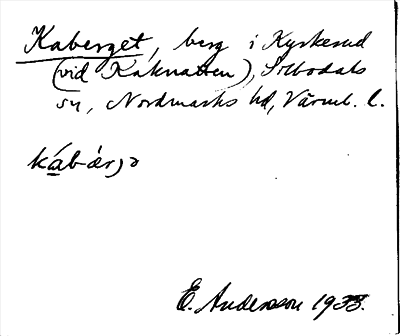 Kaberget, berg i Kyrkerud
(vid Kaknatten), Silbodals
sn, Nordmarks hd, Värml. l.
kábær̀jə
E. Andersson 1933.